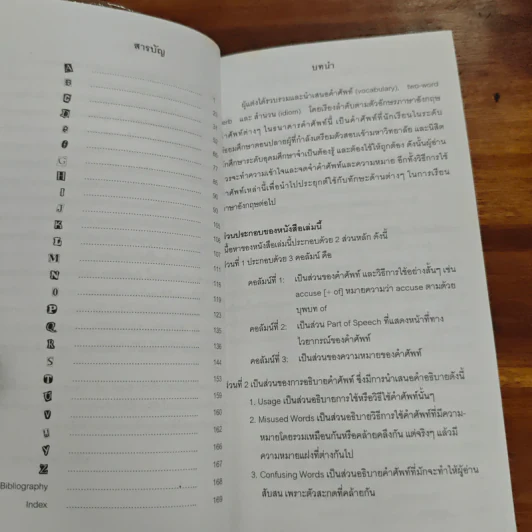 สารบัญ
A
B
C
D
E
G
H
I
J
K
L
M
N
O
P
Q
R
S
T
U
V
V
Z
Bibliography
Index
105
109
110
115
119
123
135
144
151
159
161
167
167
168
169
บทนำ
ผู้แต่งได้รวบรวมและนำเสนอคำศัพท์ (vocabulary), two-word
และ สำนวน (idiom) โดยเรียงลำดับตามตัวอักษรภาษาอังกฤษ
คำศัพท์ต่างๆ ในธนาคารคำศัพท์นี้ เป็นคำศัพท์ที่นักเรียนในระดับ
มัธยมศึกษาตอนปลายผู้ที่กำลังเตรียมตัวสอบเข้ามหาวิทยาลัย และนิสิต
นักศึกษาระดับอุดมศึกษาจำเป็นต้องรู้ และต้องใช้ให้ถูกต้อง ดังนั้นผู้อ่าน
ควรจะทำความเข้าใจและจดจำคำศัพท์และความหมาย อีกทั้งวิธีการใช้
คำศัพท์เหล่านี้เพื่อนำไปประยุกต์ใช้กับทักษะด้านต่างๆ ในการเรียน
ภาษาอังกฤษต่อไป
ส่วนประกอบของหนังสือเล่มนี้
เนื้อหาของหนังสือเล่มนี้ประกอบด้วย 2 ส่วนหลัก ดังนี้
ส่วนที่ 1 ประกอบด้วย 3 คอลัมน์ คือ
คอลัมน์ที่ 1: เป็นส่วนของคำศัพท์ และวิธีการใช้อย่างสั้นๆ เช่น
accuse [+ of] หมายความว่า accuse ตามด้วย
บุพบท of
คอลัมน์ที่ 2: เป็นส่วน Part of Speech ที่แสดงหน้าที่ทาง
ไวยากรณ์ของคำศัพท์
คอลัมน์ที่ 3: เป็นส่วนของความหมายของคำศัพท์
ส่วนที่ 2 เป็นส่วนของการอธิบายคำศัพท์ ซึ่งมีการนำเสนอคำอธิบายดังนี้
1. Usage เป็นส่วนอธิบายการใช้หรือวิธีใช้คำศัพท์นั้นๆ
2. Misused Words เป็นส่วนอธิบายวิธีการใช้คำศัพท์ที่มีความ-
หมายโดยรวมเหมือนกันหรือคล้ายคลึงกัน แต่จริงๆ แล้วมี
ความหมายแฝงที่ต่างกันไป
3. Confusing Words เป็นส่วนอธิบายคำศัพท์ที่มักจะทำให้ผู้อ่าน
สับสน เพราะตัวสะกดที่คล้ายกัน